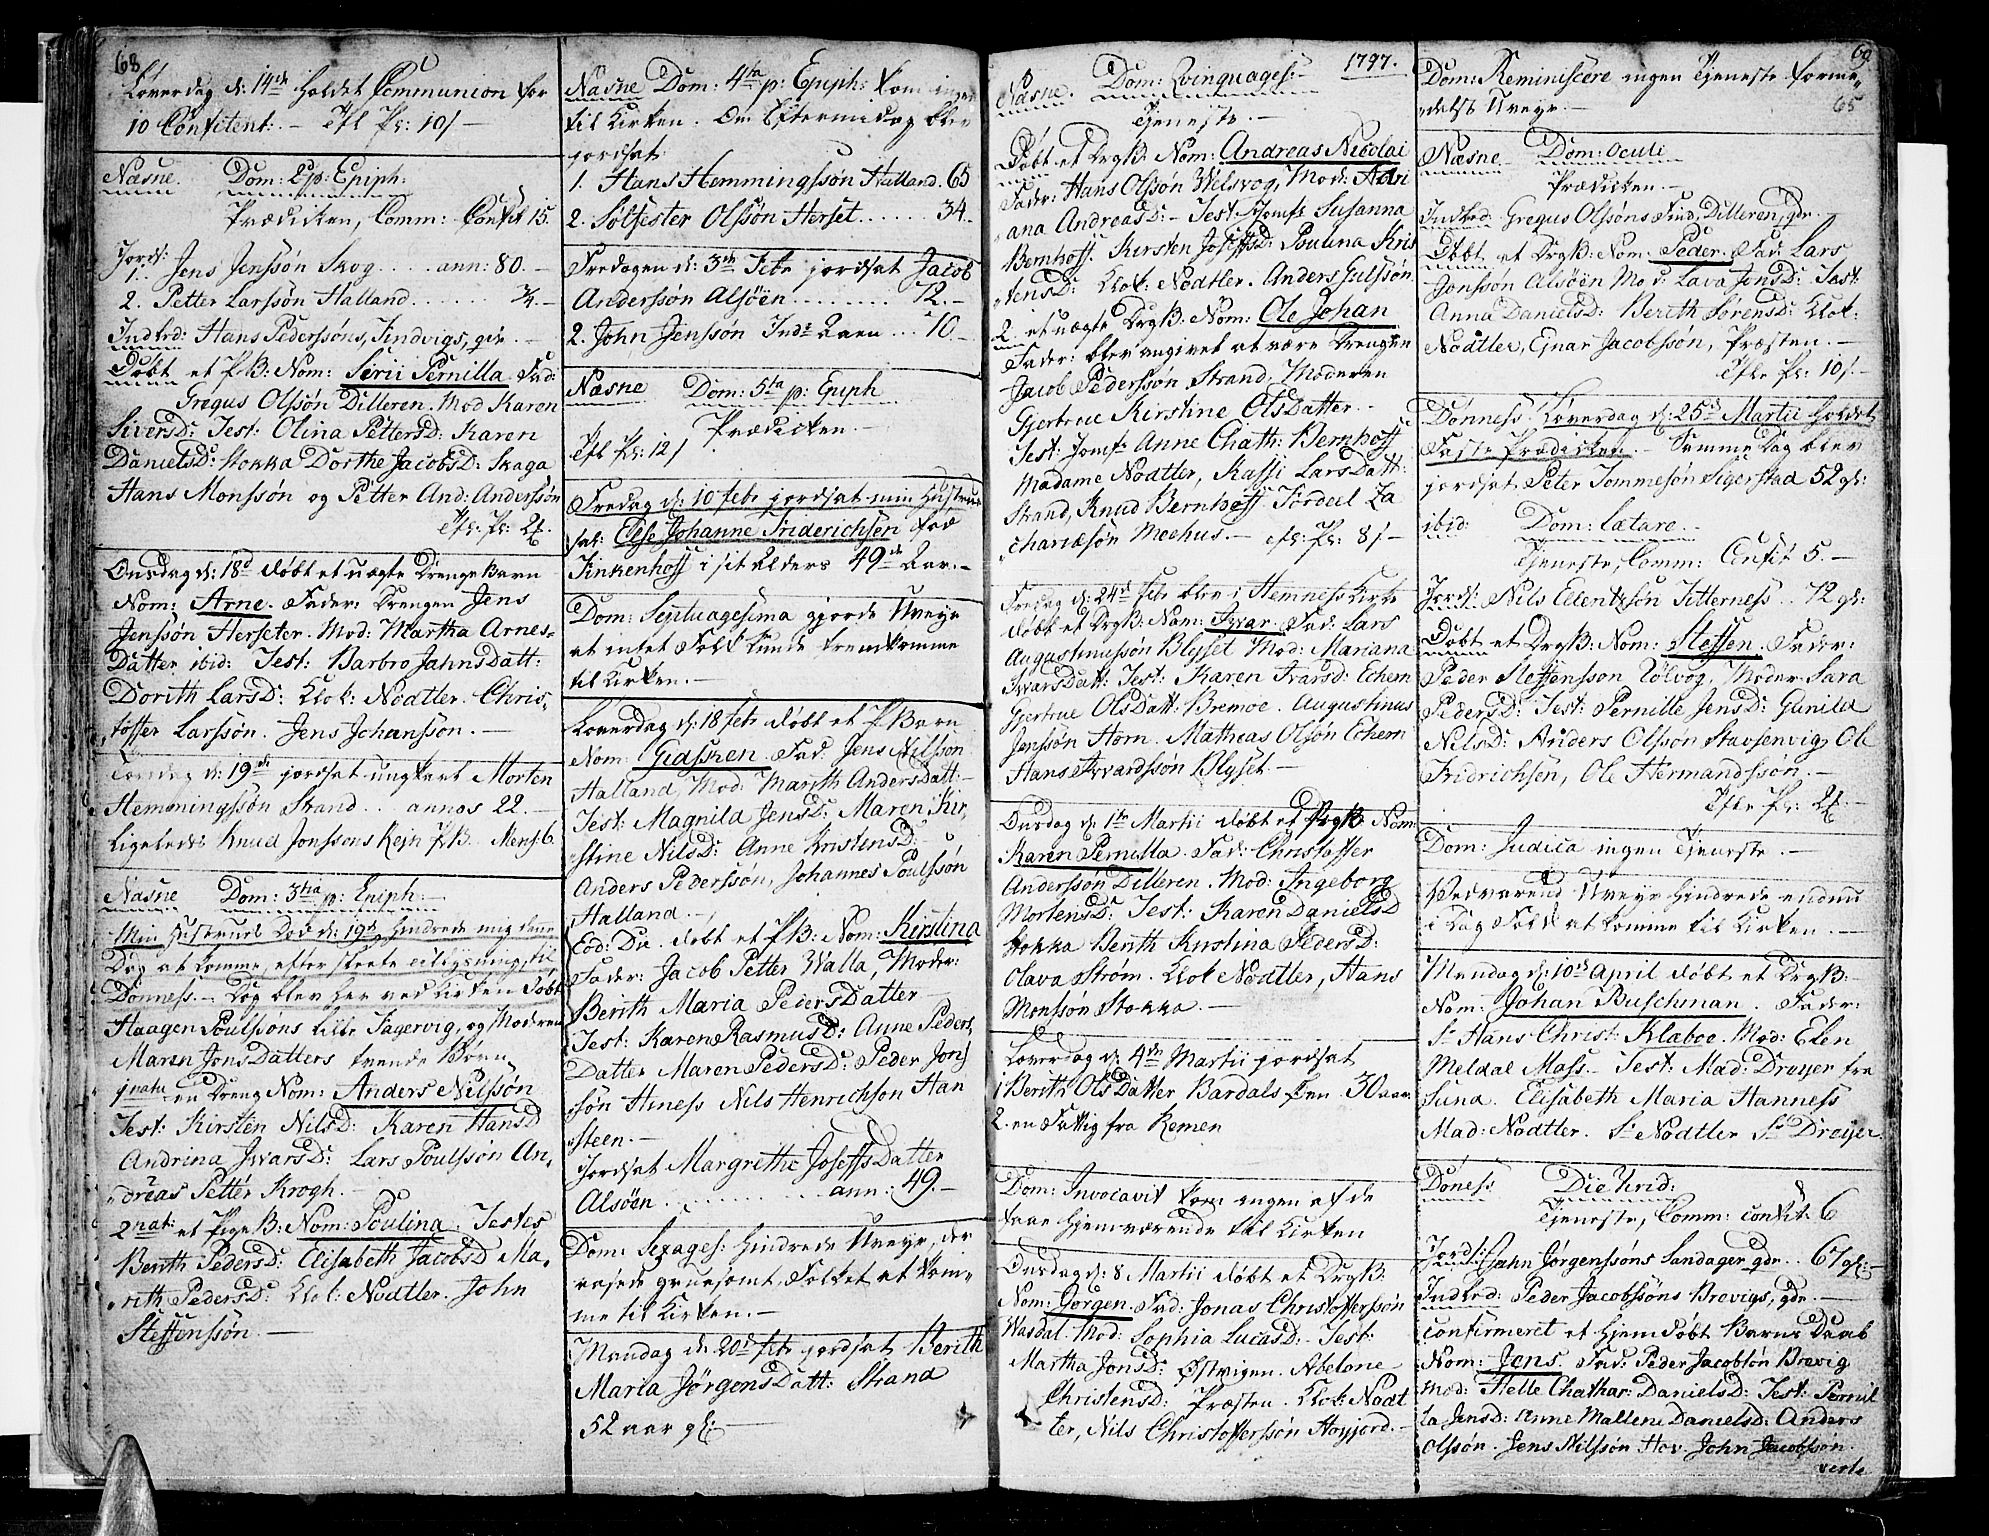 68
Løverdag d: 14de holdet Communion for
10 Confitent: — Tfl Pr: 10/—
Næsne. Dom: 2 p: Epiph:
Prædicken, Comm: Confit 15.
Jords:
1. Jens Jenssön Skog .... ann: 80. —
2. Petter Larssön Halland ......
Indled: Hans Pederssöns, Findvigs, gde. —
Döbt et P B: Nom: Sirii Pernilla. Fad:
Gregus Olssön Dilleren. Mod Karen
Siversd: Test: Olina Pettersd: Karen
Danielsd: Stokka Dorthe Jacobsd: Skaga
Hans Monssön og Petter And: Anderssön
Tfl: Pr:
Onsdag d: 18d döbt et uægte Drenge Barn
Nom: Arne. Fader: Drengen Jens
Jenssön Herseter. Mod: Martha Arnes=
Datter ibid: Test: Barbro JahnsDatt:
Dorith Larsd: Klok: Nodtler. Chris,
toffer Larssön. Jens Johanssön. —
d: 19de jordsat ungkarl Morten
Hemmingssön Strand .. annos 22. —
Ligeledes Knud Jonssons Rejn P B. Mens: 6.
Næsne Dom: 3tia p: Epiph: —
Min Hustrues Död d: 19de hindrede mig denne
Dag at komme, efter skeete til
Dönness. — Dog blev her ved Kirken Döbt
Haagen Poulssöns Fagervig, og Moderen
Maren JonsDatters tvende Börn
1 nata en Dreng Nom: Anders Nilssön
Test: Kirsten Nilsd: Karen Hansd
Andrina Iwarsd: Lars Poulssön An,
dreas Petter Krogh. —
2 nat: et Pige B: Nom: Poulina. Testes
Berith Pedersd: Elisabeth Jacobsd Ma,
rith Pedersd: Klok: Nodtler. John
Steffenssön. —
Næsne Dom: 4ta p: Epiph: kom ingen
til Kirken. Om Eftermidag blev
jordsat
1. Hans Hemmingssön Halland. 65
2. Sölfester Olssön Herset ...... 34.
Fredagen d: 3die Febr jordsat Jacob
Anderssön Alsöen ......... 72. —
2. John Jenssön Indr Qven ... 10. —
Næsne Dom: 5ta p: Epiph
Prædicken. —
Tfl Pr: 12/
Fredag d: 10 febr jordsat min Hustrue
sal: Else Johanne Friderichsen föd
Finkenhoff i sit Alders 49de Aar. —
Dom: Septuagesima gjorde Uveyr
at intet Folk kunde fremkomme
til Kirken. —
Löverdag d: 18 febr döbt et P Barn
Nom: Giasken Fad: Jens Nilsson
Halland, Mod: Marith AndersDatt: —
Test: Magnild Jensd: Maren Kir,
stine Nilsd: Anne Kristensd: —
Anders Pederssön, Johannes Poulssön
Halland. —
Eod: Die. döbt et P B: Nom: Kirstina
Fader: Jacob Petter Walla, Moder:
Berith Maria PedersDatter —
Test: Karen Rasmusd: Anne Peders,
Datter Maren Pedersd: Peder Jons
sön Hness Nils Henrichson Han
steen. —
Jordsat Margrethe JoseffsDatter
Alsöen. ............ ann: 49. —
Dom: Sexages: hindrede Uveyr, der
rasede gruesomt, Folket at kom=
me til Kirken. —
Mandag d: 20de febr jordsat Berith
Maria JörgensDatt: Strand
52 aar gl: —
1797.
Næsne. Dom: Qvinquages: —
Tjeneste. —
Döbt et DrgB: Nom: Andreas Nicolai
Fader: Hans Olssön Welsvog, Mod: Adri
ana Andreasd: — Test: Jomfr Susanna
Bernhoff. Kirsten Joseffsd: Poulina Kris
tensd: Klok: Nodtler. Anders Gulssön.
2. et uægte DrgB: Nom: Ole Johan
Fader: blev angivet at være Drengen
Jacob Pederssön Strand, Moderen
Gjertrue Kirstine OlsDatter. —
Test: Jomfr Anne Chath: Bernhoff
Madame Nodtler, Kassi LarsDatt:
Strand, Knud Bernhoff Tordeel Za
chariæsön Moehus. — Tfl: Pr: 8/—
Fredag d: 24de febr blev i Hemness Kirke
döbt et DrgB: Nom: Iwar. Fad: Lars
Augustinussön Blyset Mod: Mariana
IwarsDatt: Test: Karen Ivarsd: Echern
Gjertrue OlsDatt: Bremoe. Augustinus
Jenssön Horn. Mathias Olsön Echern
Hans Iwardssön Blyset —
Onsdag d: 1te Martii döbt et PigeB Nom:
Karen Pernilla. Fad: Christoffer
Anderssön Dilleren. Mod: Ingeborg
Mortensd: Test: Karen Danielsd
Stokka Berith Kirstina Pedersd:
Olava Ström. Klok Nodtler, Hans
Monssön Stokka. —
Löverdag d: 4de Martii jordsat
1 Berith OlsDatter Bardals Een. 30 aar.
2. en Fattig fra Remen
Dom: Invocavit kom ingen af de
faae hjemværende til Kirken
Onsdag d: 8 Martii döbt et DrgB:
Nom: Jörgen. Fad: Jonas Christoffersson
Wasdal. Mod: Sophia Lucasd: Test:
Martha Jonsd: Østvigen. Abelone
Christensd: Præsten. Klok: Nodt
ler, Nils Christofferssön Høyjord. —
69
65
Dom: Reminiscere ingen Tjeneste forme,
delst Uveyr. —
Næsne Dom: Oculi
Prædicken. —
Indled: Gregus Olssöns Dilleren, gde. —
Döbt et DrgB: Nom: Peder. Fad: Lars
Jonssön Alsöen Mod: Lava Jonsd: Test:
Anna Danielsd: Berith Sörensd: Klok:
Nodtler, Ejnar Jacobssön, Præsten. —
Tfl: Pr: 10/—
Dönness, Löverdag d: 25de Martii holdet
Faste Prædicken. — Samme Dag blev
jordsat Peter Tommesön Sigerstad 52 gl:
ibid: Dom: Lætare. —
Tjeneste, Comm: Confit 5. —
Jords: Nils Ellentzsön Titterness 72 gl:
Döbt et DrgB: Nom: Steffen. Fader:
Peder Steffensson Tölvog, Moder Sara
Pedersd: Test: Pernille Jensd: Gunild
Nilsd: Anders Olssön Stavsenvig, Ole
Fridrichsen, Ole Hermandssön. —
Tfl: Pr:
Dom: Judica ingen Tjeneste. —
Vedvarend Uveyr hindrede endnu
i Dag Folk at komme til Kirken. —
Mandag d: 10de April döbt et DrgB:
Nom: Johan Buschman. Fader:
Sr Hans Christ: Klaboe. Mod: Elen
Meldal Mass. — Test: Mad: Dreyer fra
Suna. Elisabeth Maria Hanness
Mad: Nodtler. Sr Nodtler Sr Dreyer
Döness Die Virid:
Tjeneste, Comm: confit: 6
Jords: Jahn Jörgenssöns Sandager gde. .. 67 gl: —
Indled: Peder Jacobssöns Brevigs, gde. —
confirmeret et hjem Döbt Barns Daab
Nom: Jens. Fad: Peder Jacobsön Brevig
Mod: Helle Chathar: Danielsd: Test: Pernil
la Jensd: Anne Mallene Danielsd: Anders
Olssön. Jens Nilssön Hov. John Jacobssön.
verte